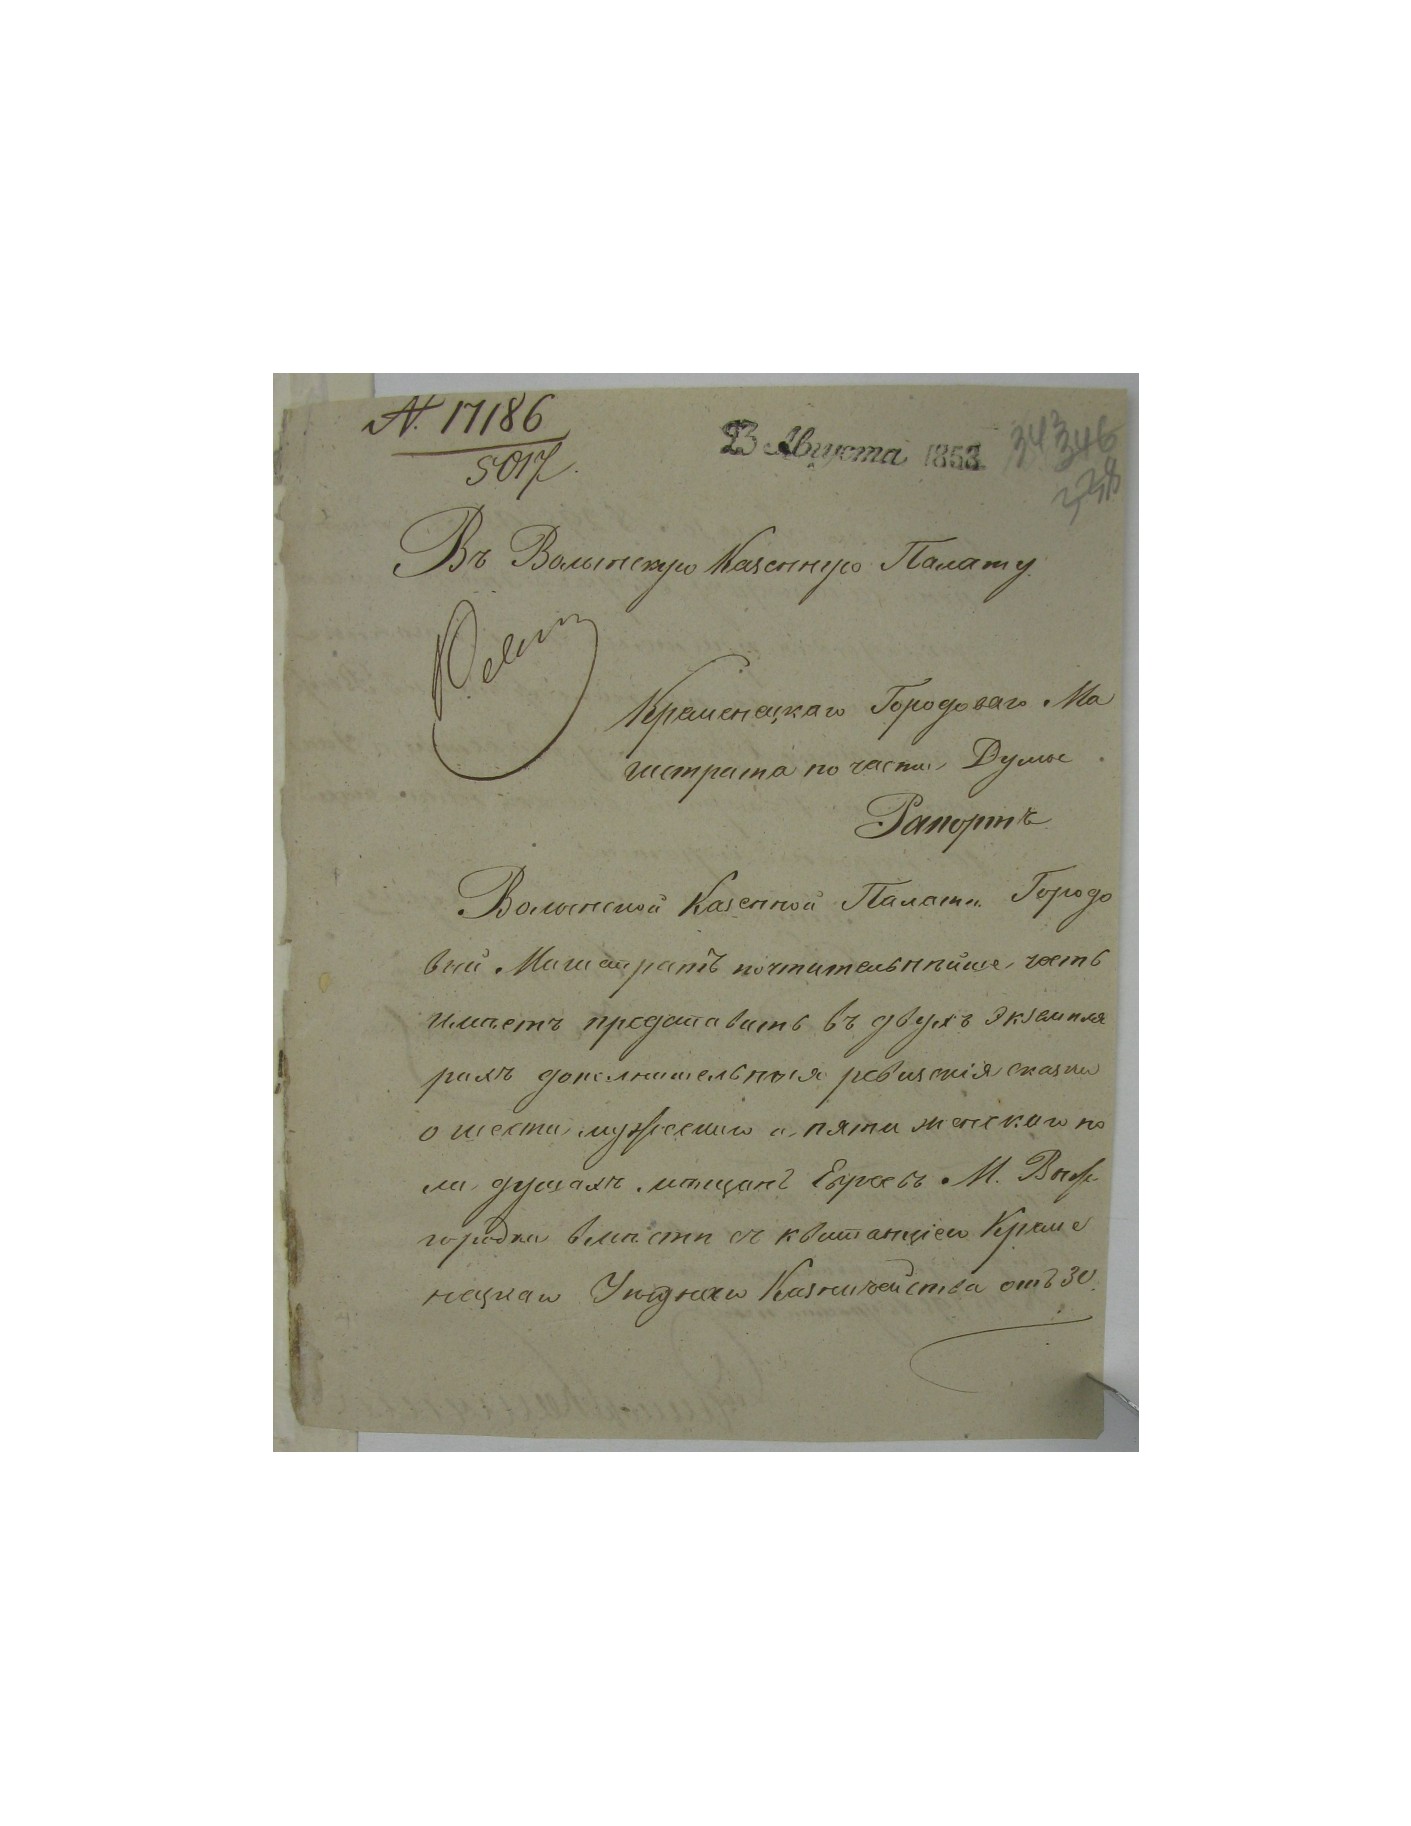 № 17186
5017
23 Августа 1853
346
Въ Волынскую Казенную Палату.
Кременецкаго Городоваго Ма
гистрата по части Думы
Рапортъ
Волынской Казенной Палатѣ Городо
вый Магистратъ почтительнѣйше честь
имѣетъ представить въ двухъ экземпля
рахъ дополнительныя ревизскія сказки
о шести мужескаго и пяти женскаго по
ла душахъ мѣщанъ Евреевъ М. Выж
городка вмѣстѣ съ квитанціею Креме
нецкаго Уѣзднаго Казначейства отъ 30.